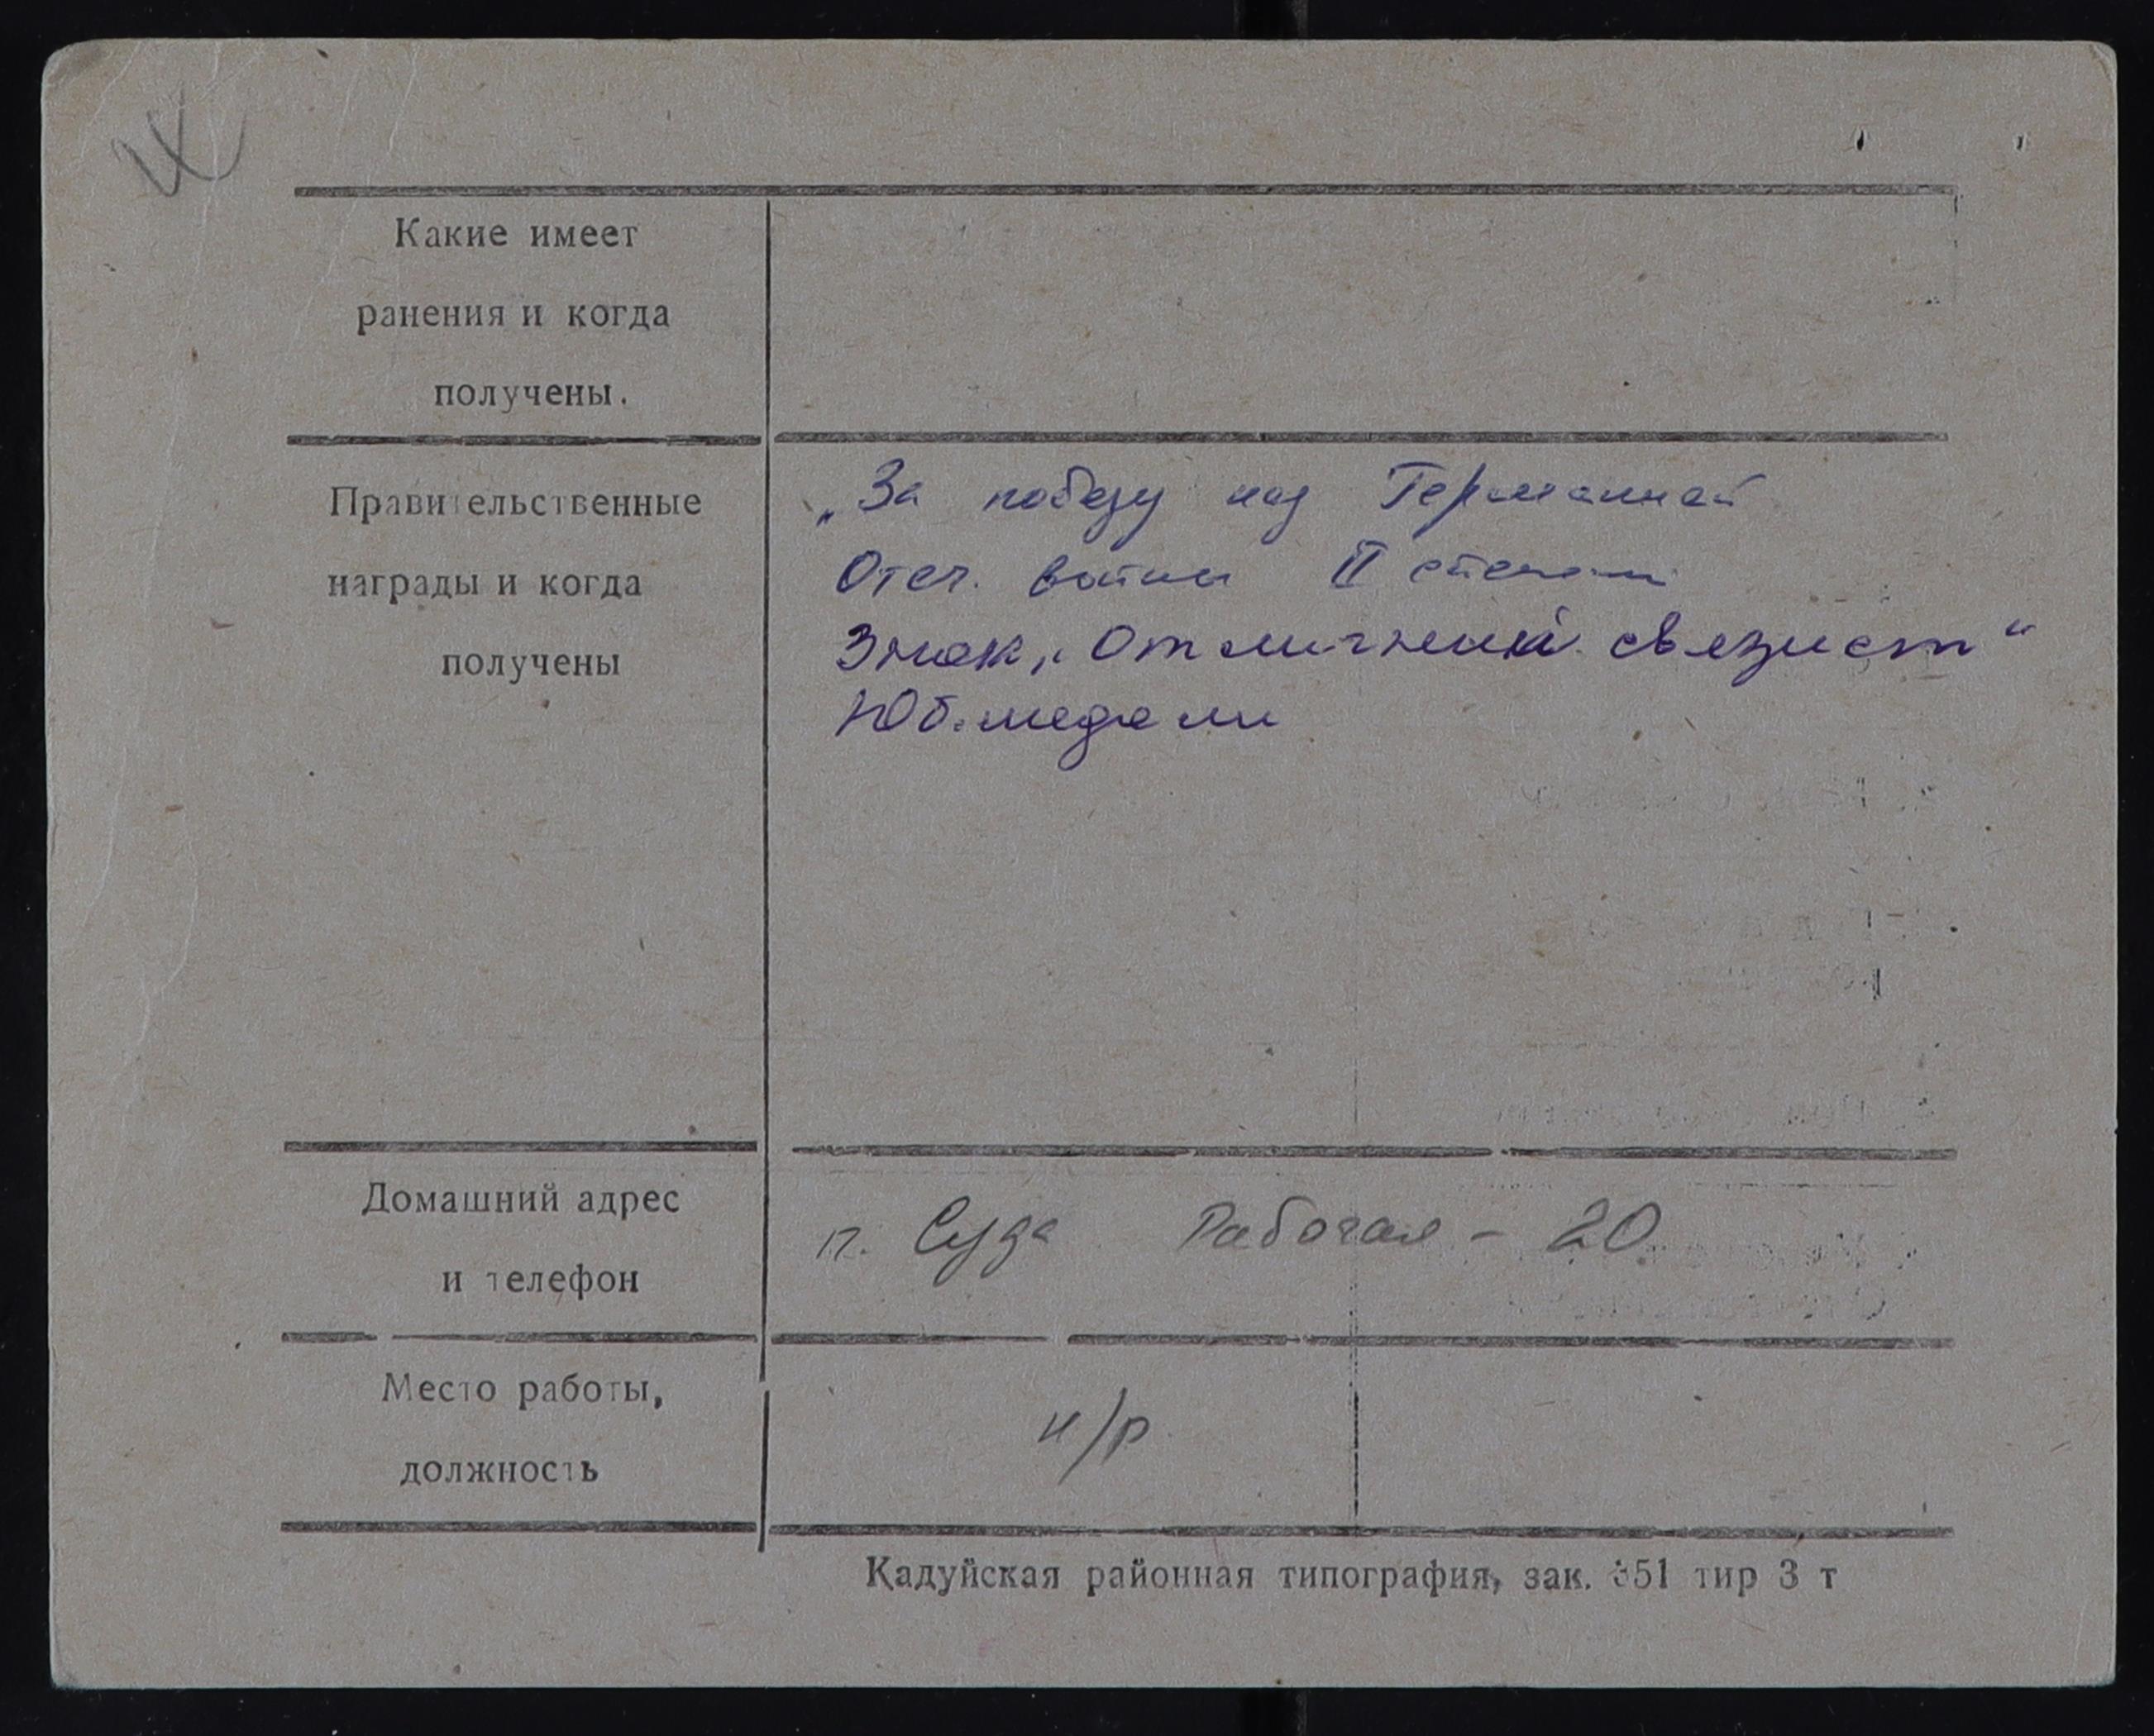 Какие имеет
ранения и когда
получены.
Правительственные
награды и когда
получены
„За победу над Германией
Отеч. войны II степени
Знак „Отличный связист“
Юб. медали
Домашний адрес
и телефон
п. Суда Рабочая - 20
Место работы,
должность
н/р
Кадуйская районная типография, зак. 351 тир 3 т